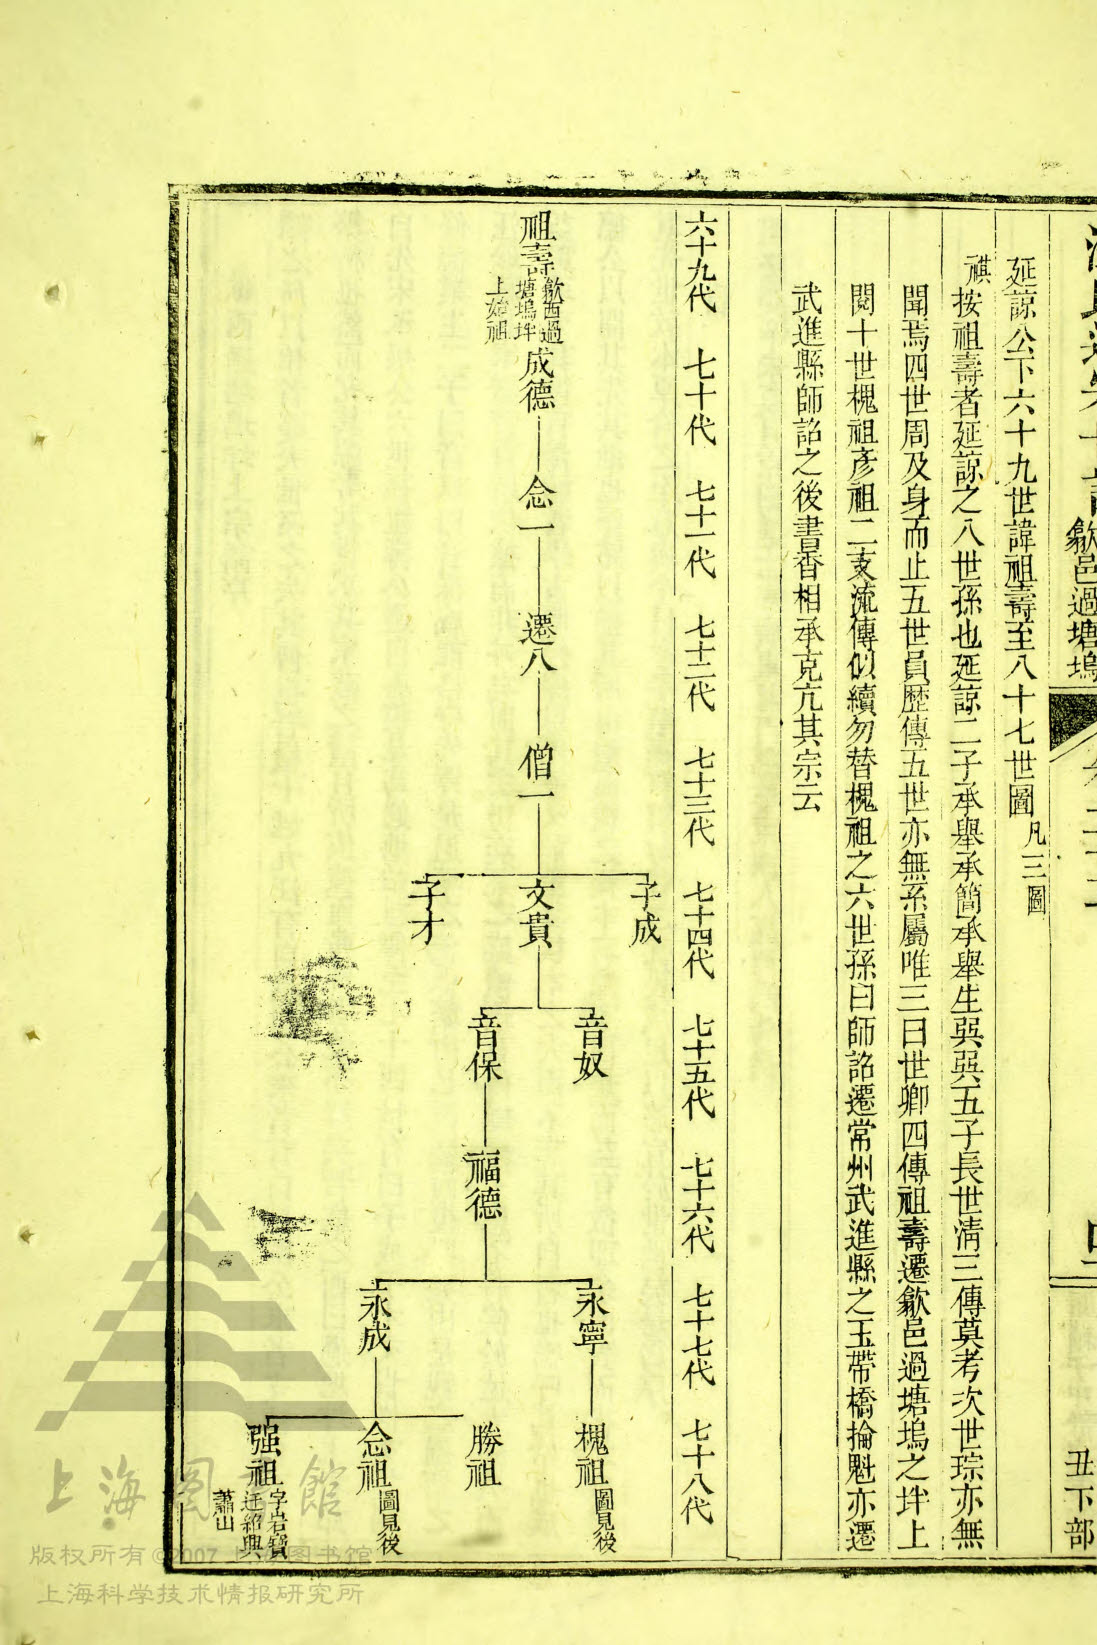 歙邑過塘塢
丑下部
延諒公下六十九世諱祖壽至八十七世圖
凡三圖
祺按祖壽者延諒之八世孫也延諒二子承舉承簡承舉生巽巽五子長世清三傳莫考次世琮亦無
聞焉四世周及身而止五世員歷傳五世亦無系屬唯三曰世卿四傳祖壽遷歙邑過塘塢之坢上
閱十世槐祖彥祖二支流傳似續勿替槐祖之六世孫曰師詔遷常州武進縣之玉帶橋掄魁亦遷
武進縣師詔之後書香相承克亢其宗云
六十九代 七十代 七十一代 七十二代 七十三代 七十四代 七十五代 七十六代 七十七代 七十八代
祖壽
歙西過
塘塢坢
上始祖
成德
念一
遷八
僧一
子成
文貴
子才
音奴
音保
福德
永寧
永成
槐祖
圖見後
勝祖
念祖
圖見後
强祖
字岩寶
迁紹興
蕭山
上海图书馆
版权所有©2007 上海图书馆
上海科学技术情报研究所